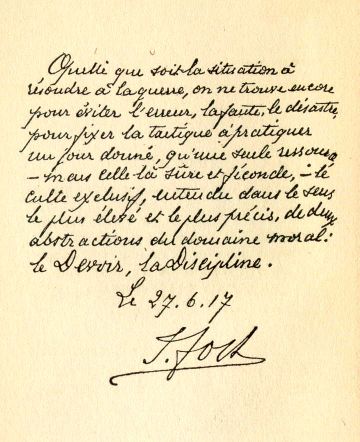 Quelle que soit la situation à
résoudre à la guerre, on ne trouve encore
pour éviter l'erreur, la faute, le désastre,
pour fixer la tactique à pratiquer
un jour donné, qu'une seule ressource
- mais celle là sûre et féconde, - le
culte exclusif, entendu dans le sens
le plus élevé et le plus précis, de deux
abstractions du domaine moral :
le Devoir, la Discipline.
Le 27.6.17
F. Foch